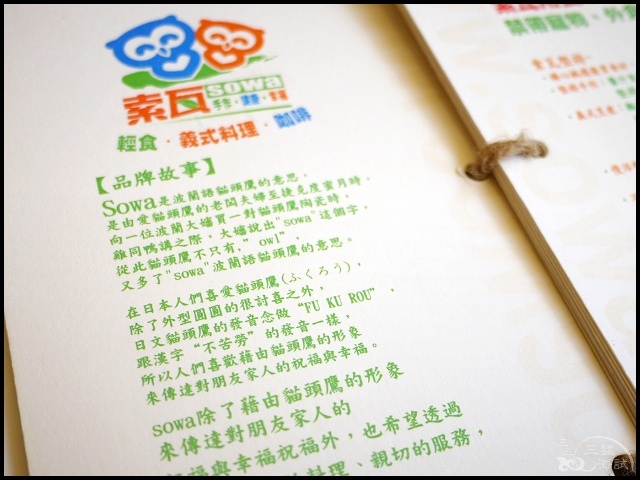 索瓦 sowa
輕食‧義式料理‧咖啡
【品牌故事】
Sowa是波蘭語貓頭鷹的意思，
是由愛貓頭鷹的老闆夫婦至捷克度蜜月時，
向一位波蘭大嬸買一對貓頭鷹陶瓷時，
雞同鴨講之際，大嬸說出"sowa"這個字，
從此貓頭鷹不只有，"owl"，
又多了"sowa"波蘭語貓頭鷹的意思。
在日本人們喜愛貓頭鷹(ふくろう)，
除了外型圓圓的很討喜之外，
日文貓頭鷹的發音念做“FU KU ROU”，
跟漢字“不苦勞”的發音一樣，
所以人們喜歡藉由貓頭鷹的形象
來傳達對朋友家人的祝福與幸福。
sowa除了藉由貓頭鷹的形象
來傳達對朋友家人的
祝福與幸福祝福外，也希望透過
料理、親切的服務，
禁帶寵物、外食